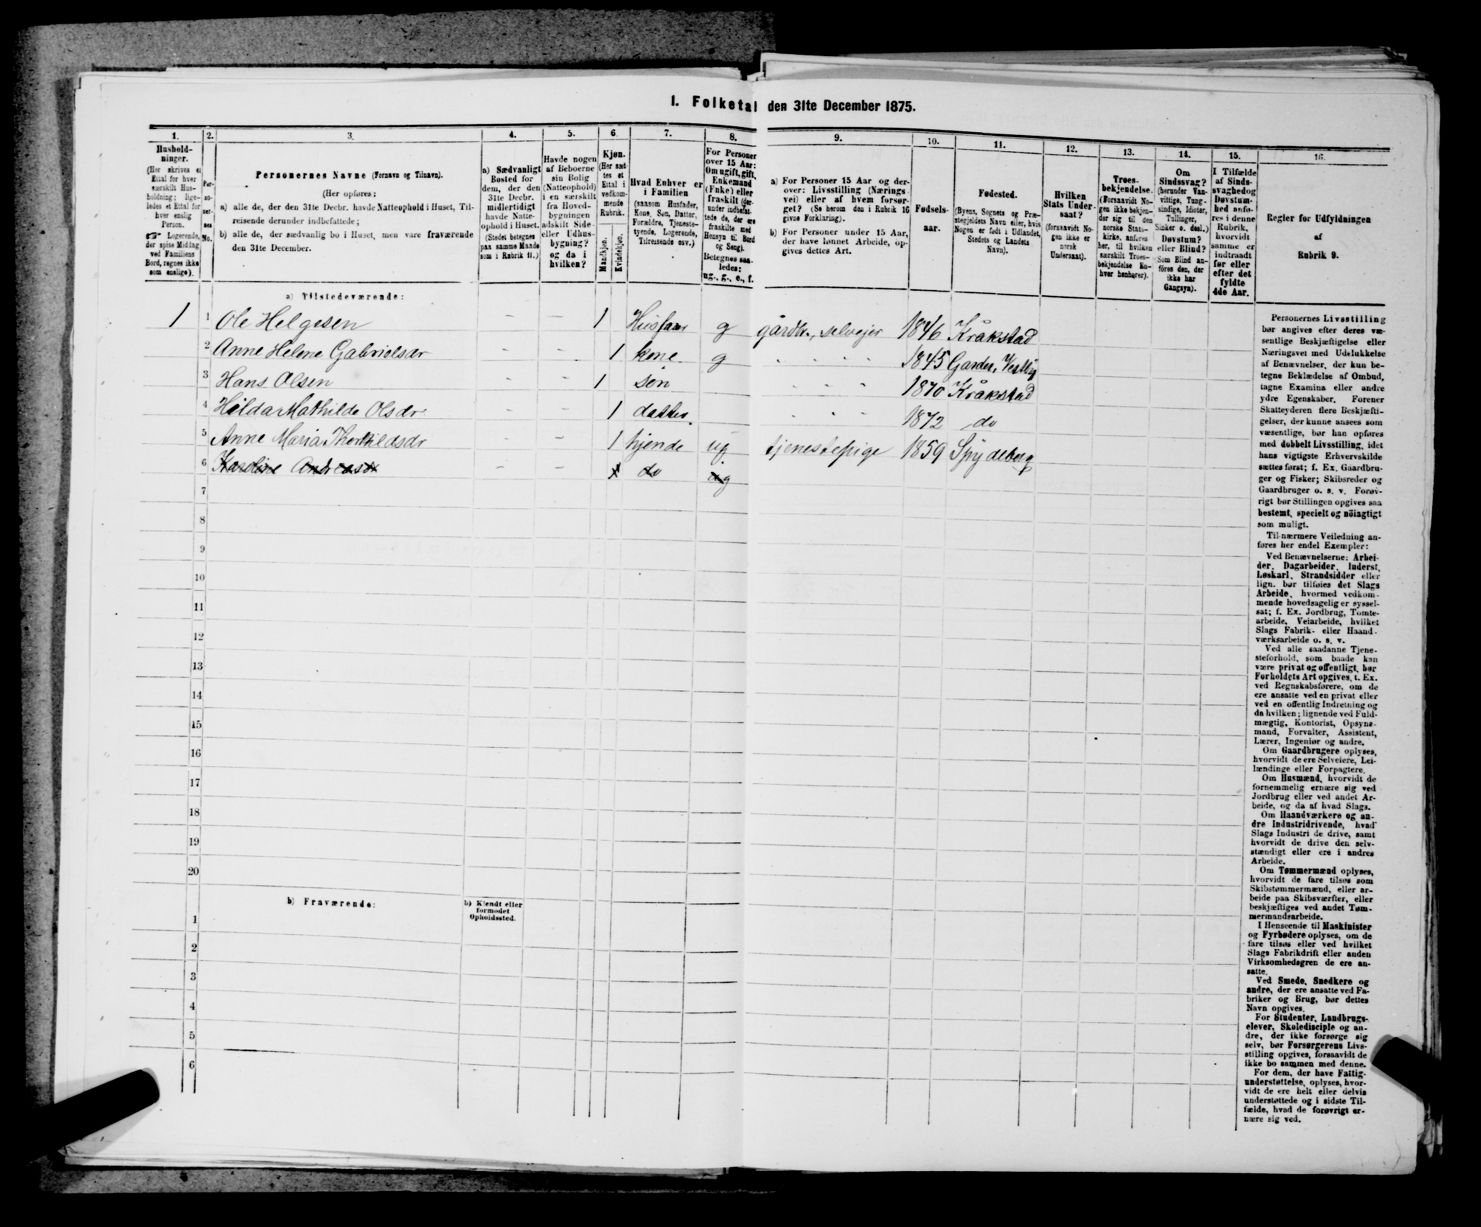 I. Folketal den 31te December 1875.
1. 2. 3. 4. 5. 6. 7. 8. 9. 10. 11. 12. 13. 14. 15. 16.
Hushold-
ninger.
(Her skrives et
Ettal for hver
særskilt Hus-
holdning; lige-
ledes et Ettal for
hver enslig
Person.
☞ Logerende,
der spise Middag
ved Familiens
Bord, regnes ikke
som enslige).
Per-
so-
ner-
nes
No.
Personernes Navne (Fornavn og Tilnavn).
(Her opføres;
a) alle de, der den 31te Decbr. havde Natteophold i Huset, Til-
reisende derunder indbefattede;
b) alle de, der sædvanlig bo i Huset, men vare fraværende
den 31te December.
a) Sædvanligt
Bosted for
dem, der den
31te Decbr.
midlertidigt
havde Natte-
ophold i Huset.
(Stedet betegnes
paa samme Maade
som i Rubrik 11.)
Havde nogen
af Beboerne
sin Bolig
(Natteophold)
i en særskilt
fra Hoved-
bygningen
adskilt Side-
eller Udhus-
bygning?
og da i
hvilken?
Kjøn.
(Her sæt-
tes et
Ettal i
vedkom-
mende
Rubrik.
Mandkjøn.
Kvindekjøn.
Hvad Enhver er
i Familien
(saasom Husfader,
Kone, Søn, Datter,
Forældre, Tjeneste-
tyende, Logerende,
Tilreisende osv.)
For Personer
over 15 Aar:
Om ugift, gift,
Enkemand
(Enke) eller
fraskilt (der-
under indbefat-
tede de, der ere
fraskilte med
Hensyn til Bord
og Seng).
Betegnes saa-
ledes:
ug., g., e., f.
a) For Personer 15 Aar og der-
over: Livsstilling (Nærings-
vei) eller af hvem forsør-
get? (Se herom den i Rubrik 16
givne Forklaring).
b) For Personer under 15 Aar,
der have lønnet Arbeide, op-
gives dettes Art.
Fødsels-
aar.
Fødested.
(Byens, Sognets og Præ-
stegjeldets Navn eller, hvis
Nogen er født i Udlandet,
Stedets og Landets
Navn).
Hvilken
Stats Under-
saat?
(forsaavidt No-
gen ikke er
norsk
Undersaat).
Troes-
bekjendelse.
(Forsaavidt No-
gen ikke bekjen-
der sig til den
norske Stats-
kirke, anføres
her, til hvilken
særskilt Troes-
bekjendelse En-
hver henhører).
Om
Sindssvag?
(herunder Van-
vittige, Tung-
sindige, Idioter,
Tullinger,
Sinker o. desl.)
Døvstum?
eller Blind?
Som Blind an-
føres den, der
ikke har
Gangsyn).
I Tilfælde
af Sinds-
svaghed og
Døvstum-
hed anfø-
res i denne
Rubrik,
hvorvidt
samme er
indtraadt
før eller
efter det
fyldte
4de Aar.
Regler for Udfyldningen
af
Rubrik 9.
a) Tilstedeværende:
1 1 Ole Helgesen - - 1 Husfaer g gårdbr., selvejer 1846 Kråkstad
2 Anne Helene Gabrielsdr - - 1 kone g 1845 Garder, Vestby
3 Hans Olsen - - 1 søn 1870 Kråkstad
4 Hilda Mathilde Olsdr - - 1 datter 1872 do
5 Anne Maria Thorkildsdr - - 1 tjende ug tjenestepige 1859 Spydeberg
6 Karoline Andreasdr 1 do ug
7
8
9
10
11
12
13
14
15
16
17
18
19
20
b) Fraværende:
b) Kjendt eller
formodet
Opholdssted.
1
2
3
4
5
6
Personernes Livsstilling
bør angives efter deres væ-
sentlige Beskjæftigelse eller
Næringsvei med Udelukkelse
af Benævnelser, der kun be-
tegne Beklædelse af Ombud,
tagne Examina eller andre
ydre Egenskaber. Forener
Skatteyderen flere Beskjæfti-
gelser, der kunne ansees som
væsentlige, bør han opføres
med dobbelt Livsstilling, idet
hans vigtigste Erhvervskilde
sættes først; f. Ex. Gaardbru-
ger og Fisker; Skibsreder og
Gaardbruger o. s. v. Forøv-
rigt bør Stillingen opgives saa
bestemt, specielt og nøiagtigt
som muligt.
Til nærmere Veiledning an-
føres her endel Exempler:
Ved Benævnelserne: Arbei-
der, Dagarbeider, Inderst,
Løskarl, Strandsidder eller
lign. bør tilføies det Slags
Arbeide, hvormed vedkom-
mende hovedsagelig er syssel-
sat; f. Ex. Jordbrug, Tomte-
arbeide, Veiarbeide, hvilket
Slags Fabrik- eller Haand-
værksarbeide o. s. v.
Ved alle saadanne Tjene-
steforhold, som baade kan
være privat og offentligt, bør
Forholdets Art opgives, t. Ex.
ved Regnskabsførere, om de
ere ansatte ved en privat eller
ved en offentlig Indretning og
da hvilken; lignende ved Fuld-
mægtig, Kontorist, Opsyns-
mand, Forvalter, Assistent,
Lærer, Ingeniør og andre.
Om Gaardbrugere oplyses,
hvorvidt de ere Selveiere, Lei-
lændinge eller Forpagtere.
Om Husmænd, hvorvidt de
fornemmelig ernære sig ved
Jordbrug eller ved andet Ar-
beide, og da af hvad Slags.
Om Haandværkere og an-
dre Industridrivende, hvad
Slags Industri de drive, samt
hvorvidt de drive den selv-
stændigt eller ere i andres
Arbeide.
Om Tømmermænd oplyses,
hvorvidt de fare tilsøs som
Skibstømmermænd, eller ar-
beide paa Skibsværfter, eller
beskjæftiges ved andet Tøm-
mermandsarbeide.
I Henseende til Maskinister
og Fyrbødere oplyses, om de
fare tilsøs eller ved hvilket
Slags Fabrikdrift eller anden
Virksomhedsgren de ere an-
satte.
Ved Smede, Snedkere og
andre, der ere ansatte ved Fa-
briker og Brug, bør dettes
Navn opgives.
For Studenter, Landbrugs-
elever, Skoledisciple og an-
dre, der ikke forsørge sig
selv, bør Forsørgerens Livs-
stilling opgives, forsaavidt de
ikke bo sammen med denne.
For dem, der have Fattig-
understøttelse, oplyses, hvor-
vidt de ere helt eller delvis
understøttede og i sidste Til-
fælde, hvad de forøvrigt er-
nære sig ved.